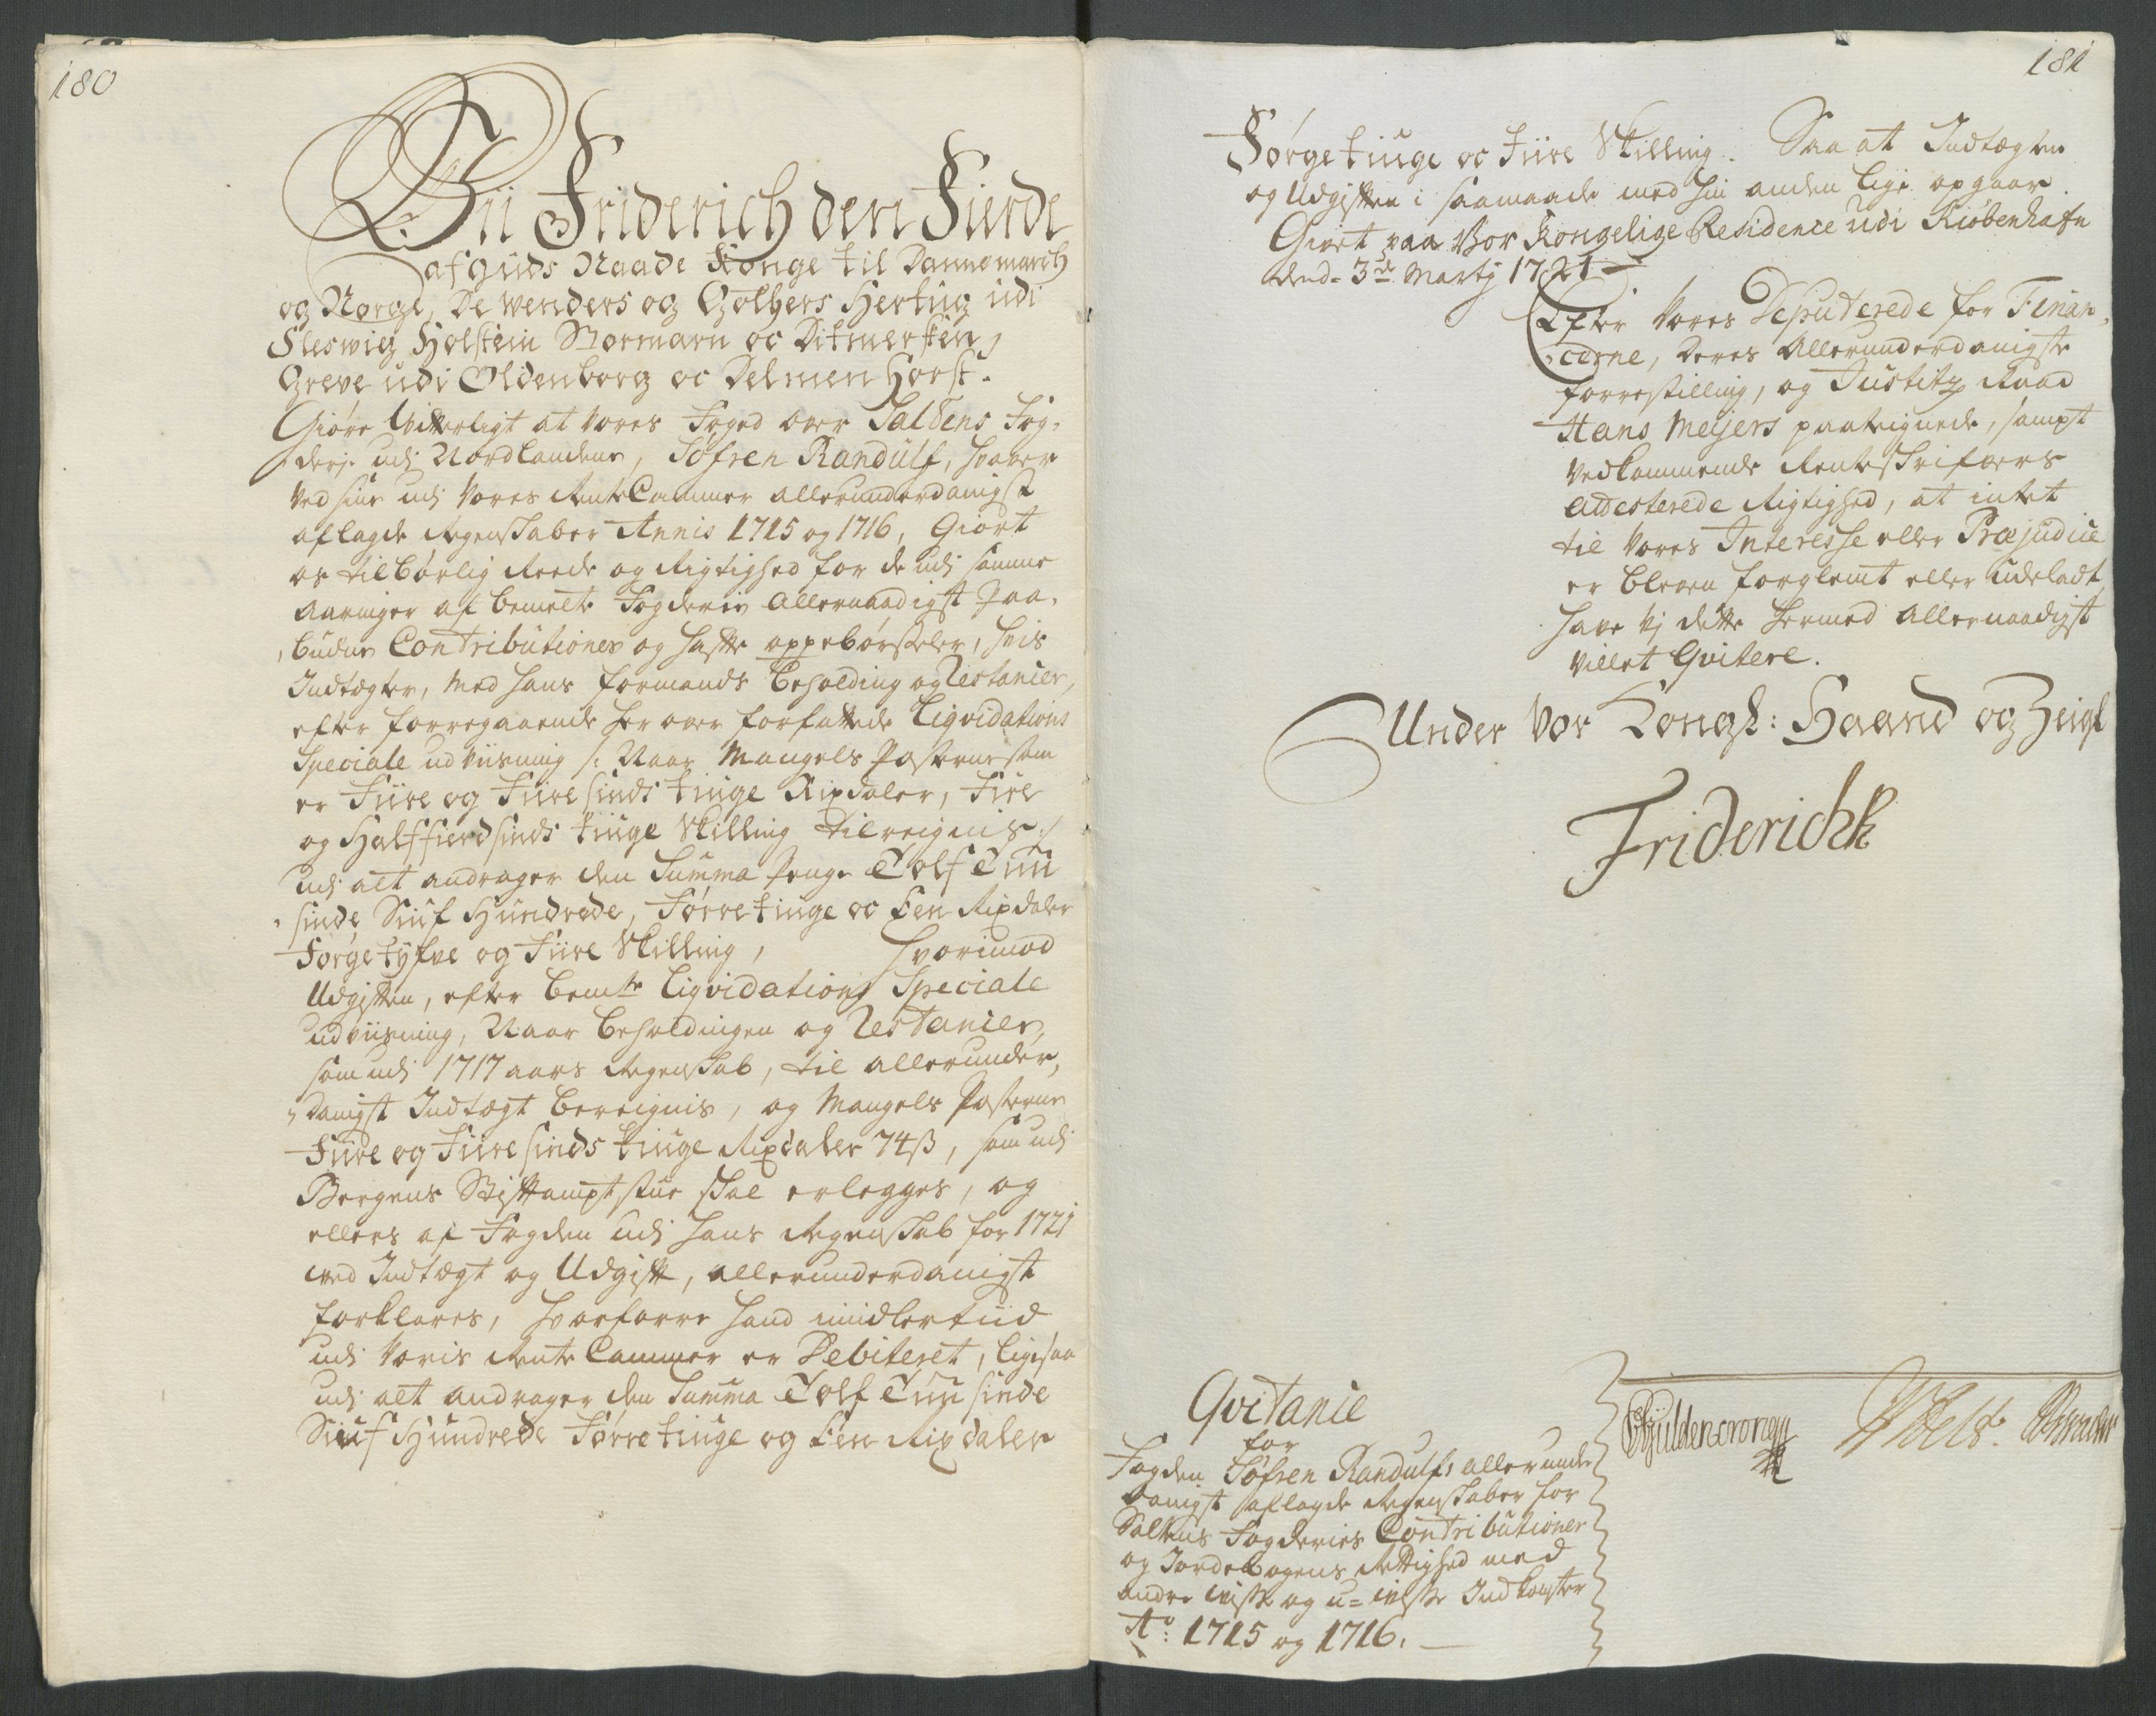 180
Wii Friderich den Fierde
af Guds Naade Konge til Dannemarch
og Norge, De Wenders og Gothers Hertug udi
Sleswig Holstein Stormarn oc Ditmersken,
Greve udi Oldenborg oc Delmenhorst.
Giøre Witterligt at Vores Foged over Saltens Fog-
derj udi Nordlandene, Søfren Randulf, haver
ved sine udi Vores RenteCammer allerunderdanigst
aflagde Regenskaber Annis 1715 og 1716, Giort
os tilbørlig Reede og Rigtighed for de udi samme
Aaringer af bemelte Fogderie Allernaadigst Paa-
budne Contributioner og hafte oppebørseler, hvis
Indtægter, med hans formands Beholding og Restancier,
efter forregaaende her over forfattede Liqvidations
Speciale udviisning /: Naar Mangels Posterne som
er Fiire og Fiiresinds tiuge Rixdaler, Fire
og Halffierdsinds tiuge Skilling tilreignis :/
udi alt andrager den Summa Penge Tolf Tuu
sinde Siuf Hundrede, Førretiuge oc Een Rixdaler
Førgetyfve og Fiire Skilling, Hvorimod
Udgiften, efter bemte Liqvidations Speciale
udviisning, Naar Beholdningen og Restancier,
som udi 1717 aars Regenskab, til allerunder-
danigst Indtægt bereignis, og Mangels Posterne
Fiire og Fiiresinds tiuge Rixdaler 74 ß, som udi
Bergens Stiftamptstue skal erlegges, og
ellers af Fogden udi hans Regenskab for 1721
ved Indtægt og Udgift, allerunderdanigst
forklares, hvorforre hand imidlertiid
udi Voris Rente Cammer er Debiteret, ligesaa
udi alt andrager den Summa Tolf Tuusinde
Siuf Hundrede Førretiuge og Een Rixdaler
181
Førgetiuge oc Fiire Skilling. Saa at Indtægten
og Udgiften i saamaade med hin anden lige opgaar.
Givet paa Vor Kongelige Residence udi Kiøbenhafn
dend 3de Martj 1721
Efter Vores Deputerede for Finan-
cerne, Deres Allerunderdanigste
forrestilling, og Justitz Raad
Hans Meijers paateignede, sampt
vedkommende Renteskrifvers
attesterede Rigtighed, at intet
til Vores Interesse eller Præjudice
er bleven forglemt eller udeladt,
have Vj dette hermed allernaadigst
villet Qvitere.
Under Vor Kongl: Haand og Zeigl
Friderich R
Qvitanie
for
Fogden Søfren Randulfs allerunder
danigst aflagde Regenskaber for
Saltens Fogderies Contributioner
og Jordebogens Rettighed med
andre visse og u-visse Indkomster
Ao: 1715 og 1716.
CGÿldencrone